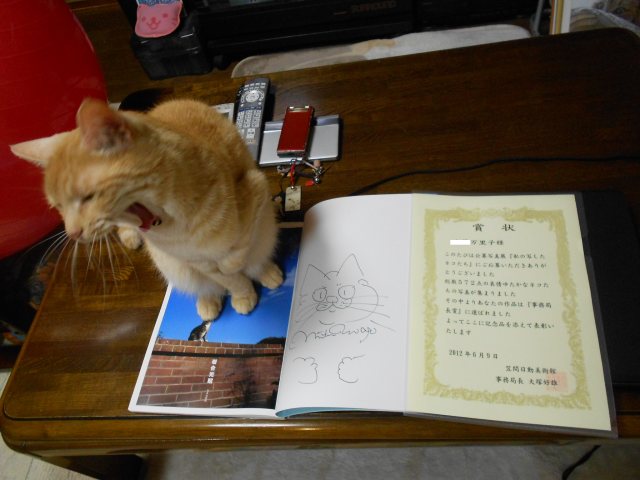 SURROUND
賞状
万里子様
このたびは公募写真展『私の写した
ネコたち』にご応募いただきありが
とうございました
総数572点の表情ゆたかなネコた
ちの写真が集まりました
その中よりあなたの作品は『事務局
長賞』に選ばれました
よってここに記念品を添えて表彰い
たします
2012年6月9日
笠間日動美術館
事務局長 大塚好雄